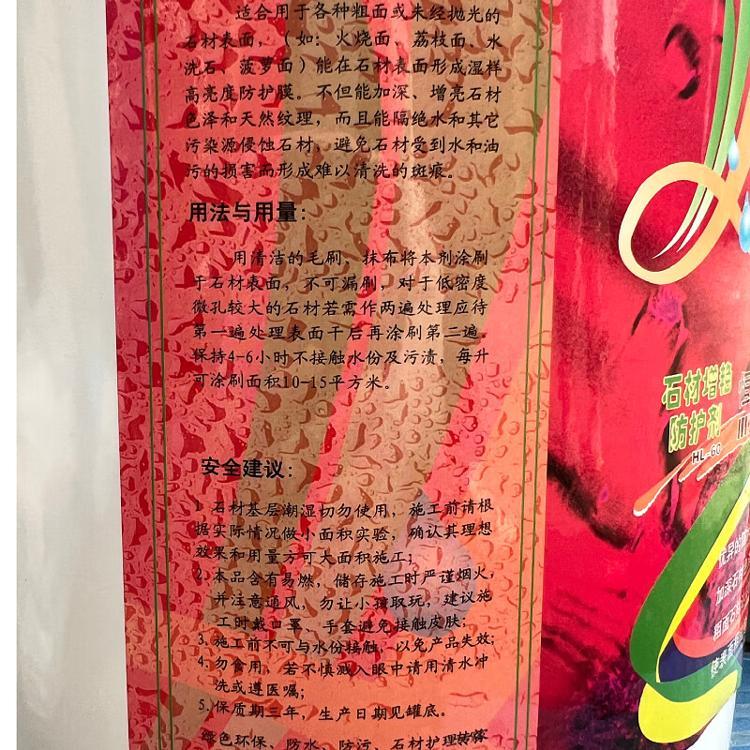 适合用于各种粗面或未经抛光的
石材表面，（如：火烧面、荔枝面、水
洗石、菠萝面）能在石材表面形成湿样
高亮度防护膜。不但能加深、增亮石材
色泽和天然纹理，而且能隔绝水和其它
污染源侵蚀石材，避免石材受到水和油
污的损害而形成难以清洗的斑痕。
用法与用量：
用清洁的毛刷、抹布将本剂涂刷
于石材表面，不可漏刷，对于低密度
微孔较大的石材若需作两遍处理应待
第一遍处理表面干后再涂刷第二遍。
保持4-6小时不接触水份及污渍，每升
可涂刷面积10-15平方米。
安全建议：
1、石材基层潮湿切勿使用，施工前请根
据实际情况做小面积实验，确认其理想
效果和用量方可大面积施工；
2、本品含有易燃，储存施工时严谨烟火，
并注意通风，勿让小孩取玩，建议施
工时戴口罩、手套避免接触皮肤；
3、施工前不可与水份接触，以免产品失效；
4、勿食用，若不慎溅入眼中请用清水冲
洗或遵医嘱；
5、保质期三年，生产日期见罐底。
绿色环保、防水、防污、石材护理专家
石材增艳
防护剂
HL-60
优异的
加深石
粗面石
使表面